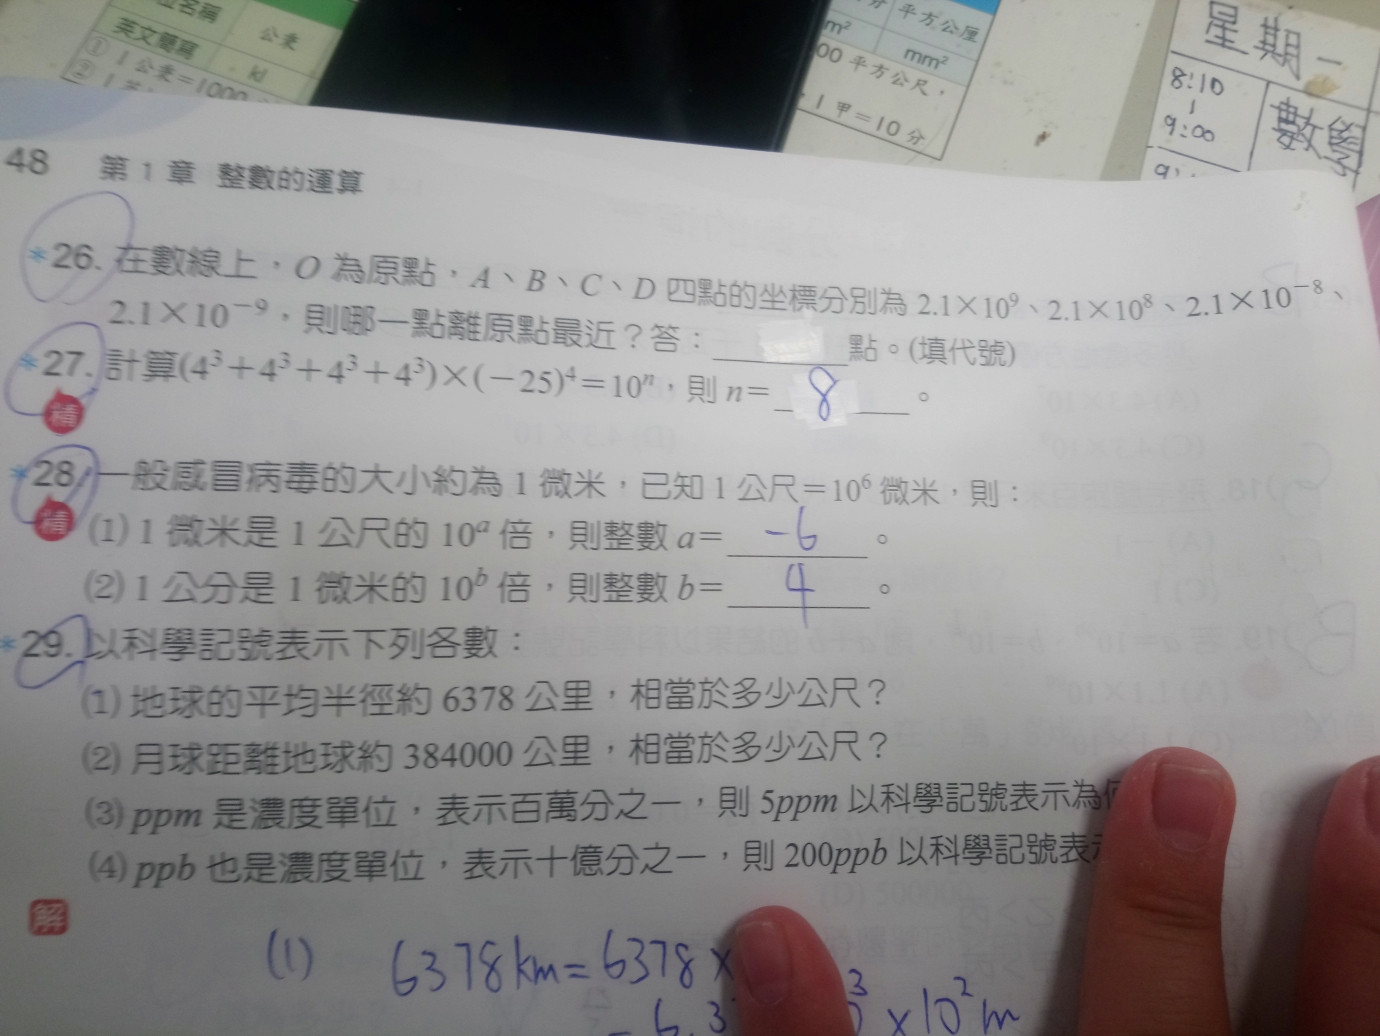 位名稱
公秉
英文簡寫
kl
① 1公秉=1000
平方公厘
m²
mm²
00平方公尺，
1甲=10分
星期一
8:10
9:00
數學
48 第1章 整數的運算
*26. 在數線上，O 為原點，A、B、C、D 四點的坐標分別為 2.1×10⁹、2.1×10⁸、2.1×10⁻⁸、
2.1×10⁻⁹，則哪一點離原點最近？答：________點。(填代號)
*27. 計算(4³+4³+4³+4³)×(-25)⁴=10ⁿ，則 n=8。
積
*28. 一般感冒病毒的大小約為 1 微米，已知 1 公尺=10⁶ 微米，則：
積
(1) 1 微米是 1 公尺的 10ᵃ 倍，則整數 a=-6。
(2) 1 公分是 1 微米的 10ᵇ 倍，則整數 b=4。
*29. 以科學記號表示下列各數：
(1) 地球的平均半徑約 6378 公里，相當於多少公尺？
(2) 月球距離地球約 384000 公里，相當於多少公尺？
(3) ppm 是濃度單位，表示百萬分之一，則 5ppm 以科學記號表示為
(4) ppb 也是濃度單位，表示十億分之一，則 200ppb 以科學記號表
解
(1) 6378km=6378×
=6.3 ³×10²m